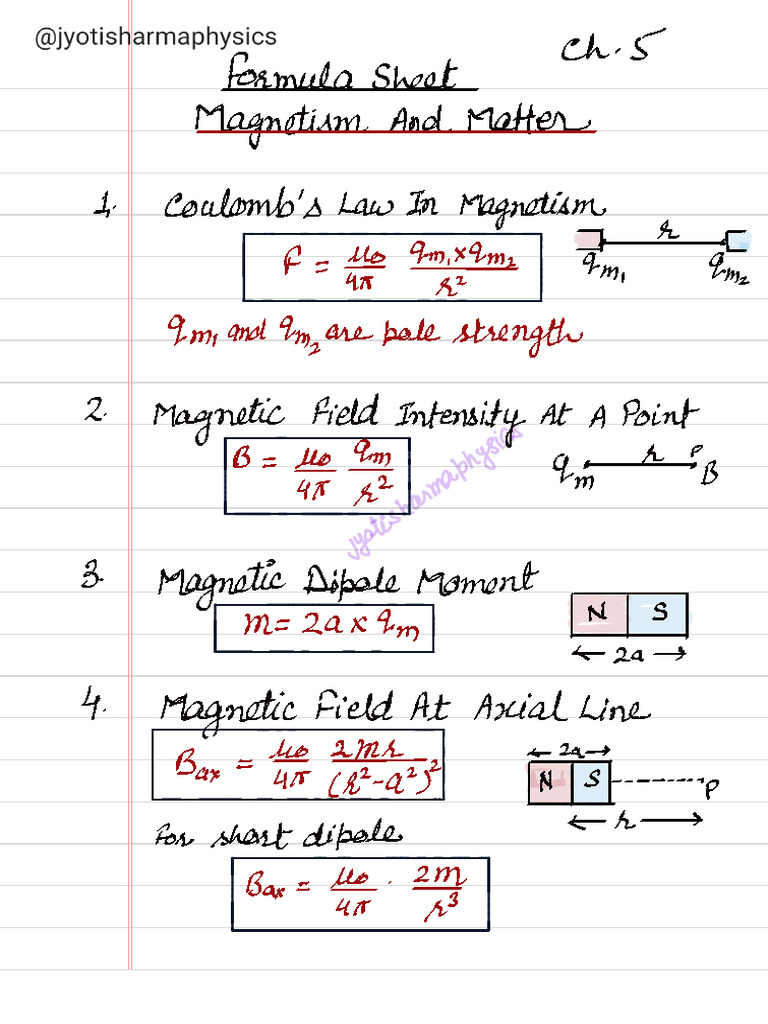 @jyotisharmaphysics
Ch. 5
Formula Sheet
Magnetism And Matter
1. Coulomb's Law In Magnetism
F = μ₀/4π qm₁ × qm₂/r²
r
qm₁ qm₂
qm₁ and qm₂ are pole strength
2. Magnetic Field Intensity At A Point
B = μ₀/4π qm/r²
qm r P B
jyotisharmaphysics
3. Magnetic Dipole Moment
m = 2a × qm
N S
2a
4. Magnetic Field At Axial Line
Bax = μ₀/4π 2mr/(r²-a²)²
2a
N S P
r
For short dipole
Bax = μ₀/4π · 2m/r³